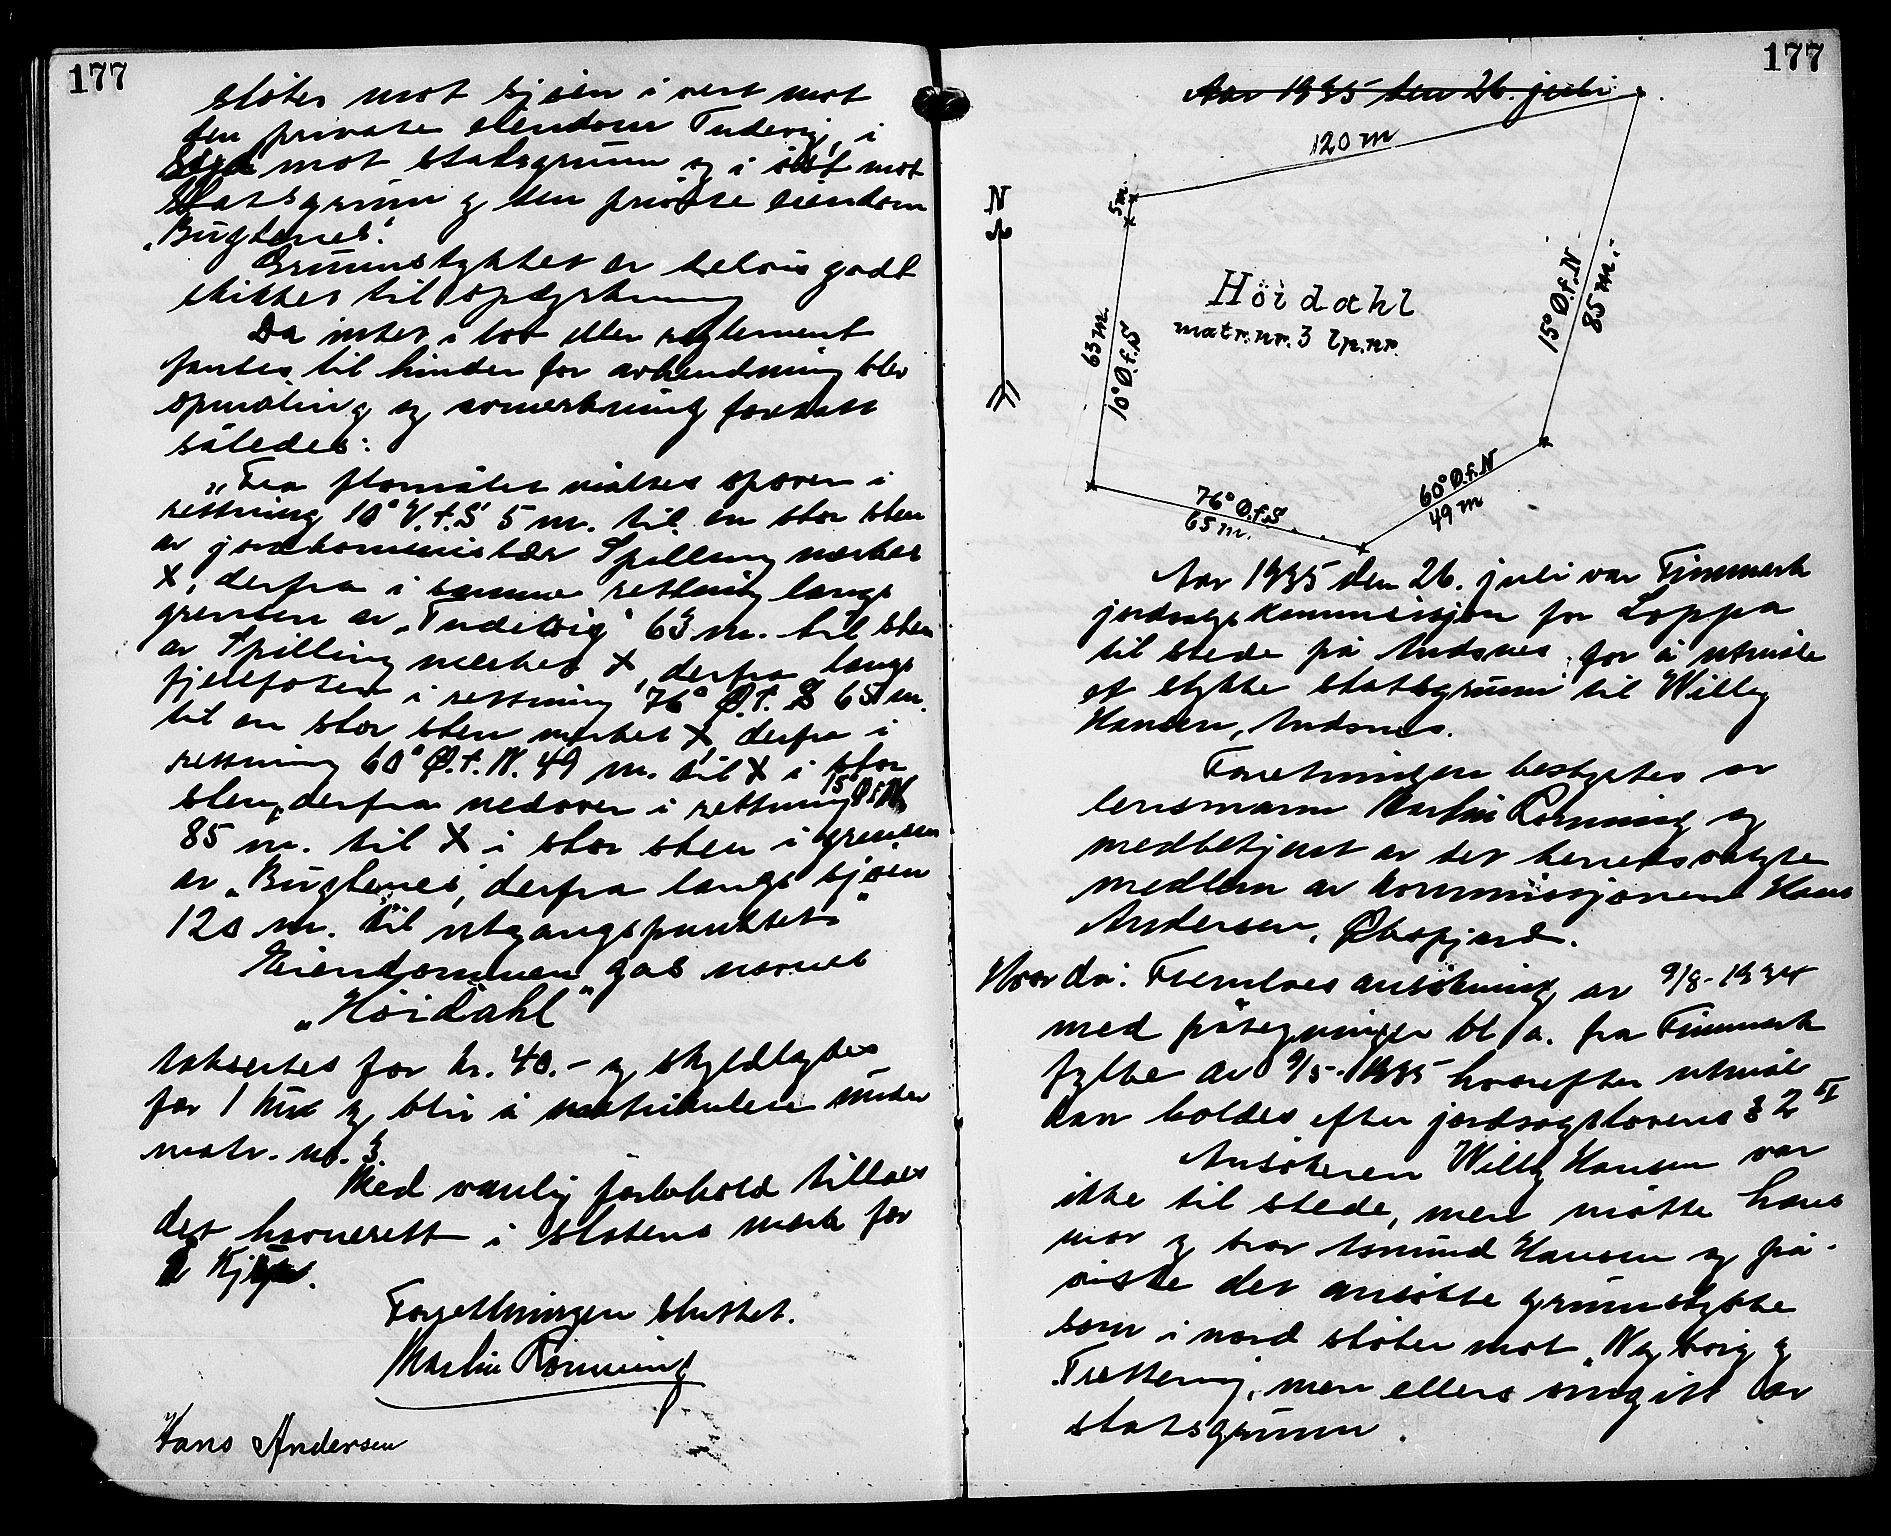 177
støter mot sjøen i vest mot
den private eiendom Tudevig, i
mot statsgrunn og i øst mot
statsgrunn og den private eiendom
„Bugtenes".
Grunnstykket er delvis godt
skikket til opdyrkning
Da intet i lov eller reglement
fantes til hinder for avhendning blev
opmåling og avmerkning foretatt
således:
„Fra flomålet måltes opover i
rettning 10° V.t.S 5 m. til en stor sten
av jordkommissær Spilling merket
X, derfra i samme rettning langs
grensen av „Tudevig" 63 m. til sten
av Spilling merket X, derfra langs
fjellfoten i rettning 76° Ø.t.S 65 m.
til en stor sten merket X, derfra i
rettning 60° Ø.t.N. 49 m. til X i stor
sten, derfra nedover i rettning 15° Ø.t.N
85 m. til X i stor sten i grensen
av „Bugtenes", derfra langs sjøen
120 m. til utgangspunktet"
Eiendommen gas navnet
„Höidahl"
taksertes for kr. 40.- og skyldlagdes
for 1 øre og blir å matrikulere under
matr. nr. 3.
Med vanlig forbehold tillaes
det havnerett i statens mark for
Forettningen sluttet.
Martin Rønning
Hans Andersen
177
Aar 1935 den 26. juli
120 m
5 m.
N
63 m.
10° Ø.f.S
Höidahl
matr.nr. 3 lp.nr.
15° Ø.f.N
85 m.
60° Ø.f.N
49 m
76° Ø.f.S.
65 m.
Aar 1935 den 26. juli var Finnmark
jordsalgskommissjon for Loppa
til stede på Andsnes for å utmåle
et stykke statsgrunn til Willy
Hansen, Andsnes.
Foretningen bestyrtes av
lensmann Martin Rønning og
medbetjent av det herredsvalgte
medlem av kommissjonen Hans
Andersen, Øksfjord.
Hvorda: Fremlaes ansökning av 9/8-1934
med påtegninger bl. a. fra Finnmark
fylke av 9/5-1935 hvorefter utmål
kan holdes efter jordsalgslovens § 2 II
Ansökeren Willy Hansen var
ikke til stede, men møtte hans
mor og bror Asmund Hansen og på-
viste det ansökte grunnstykke
som i nord støter mot „Nyborg" og
Frettevig, men ellers omgitt av
statsgrunn.